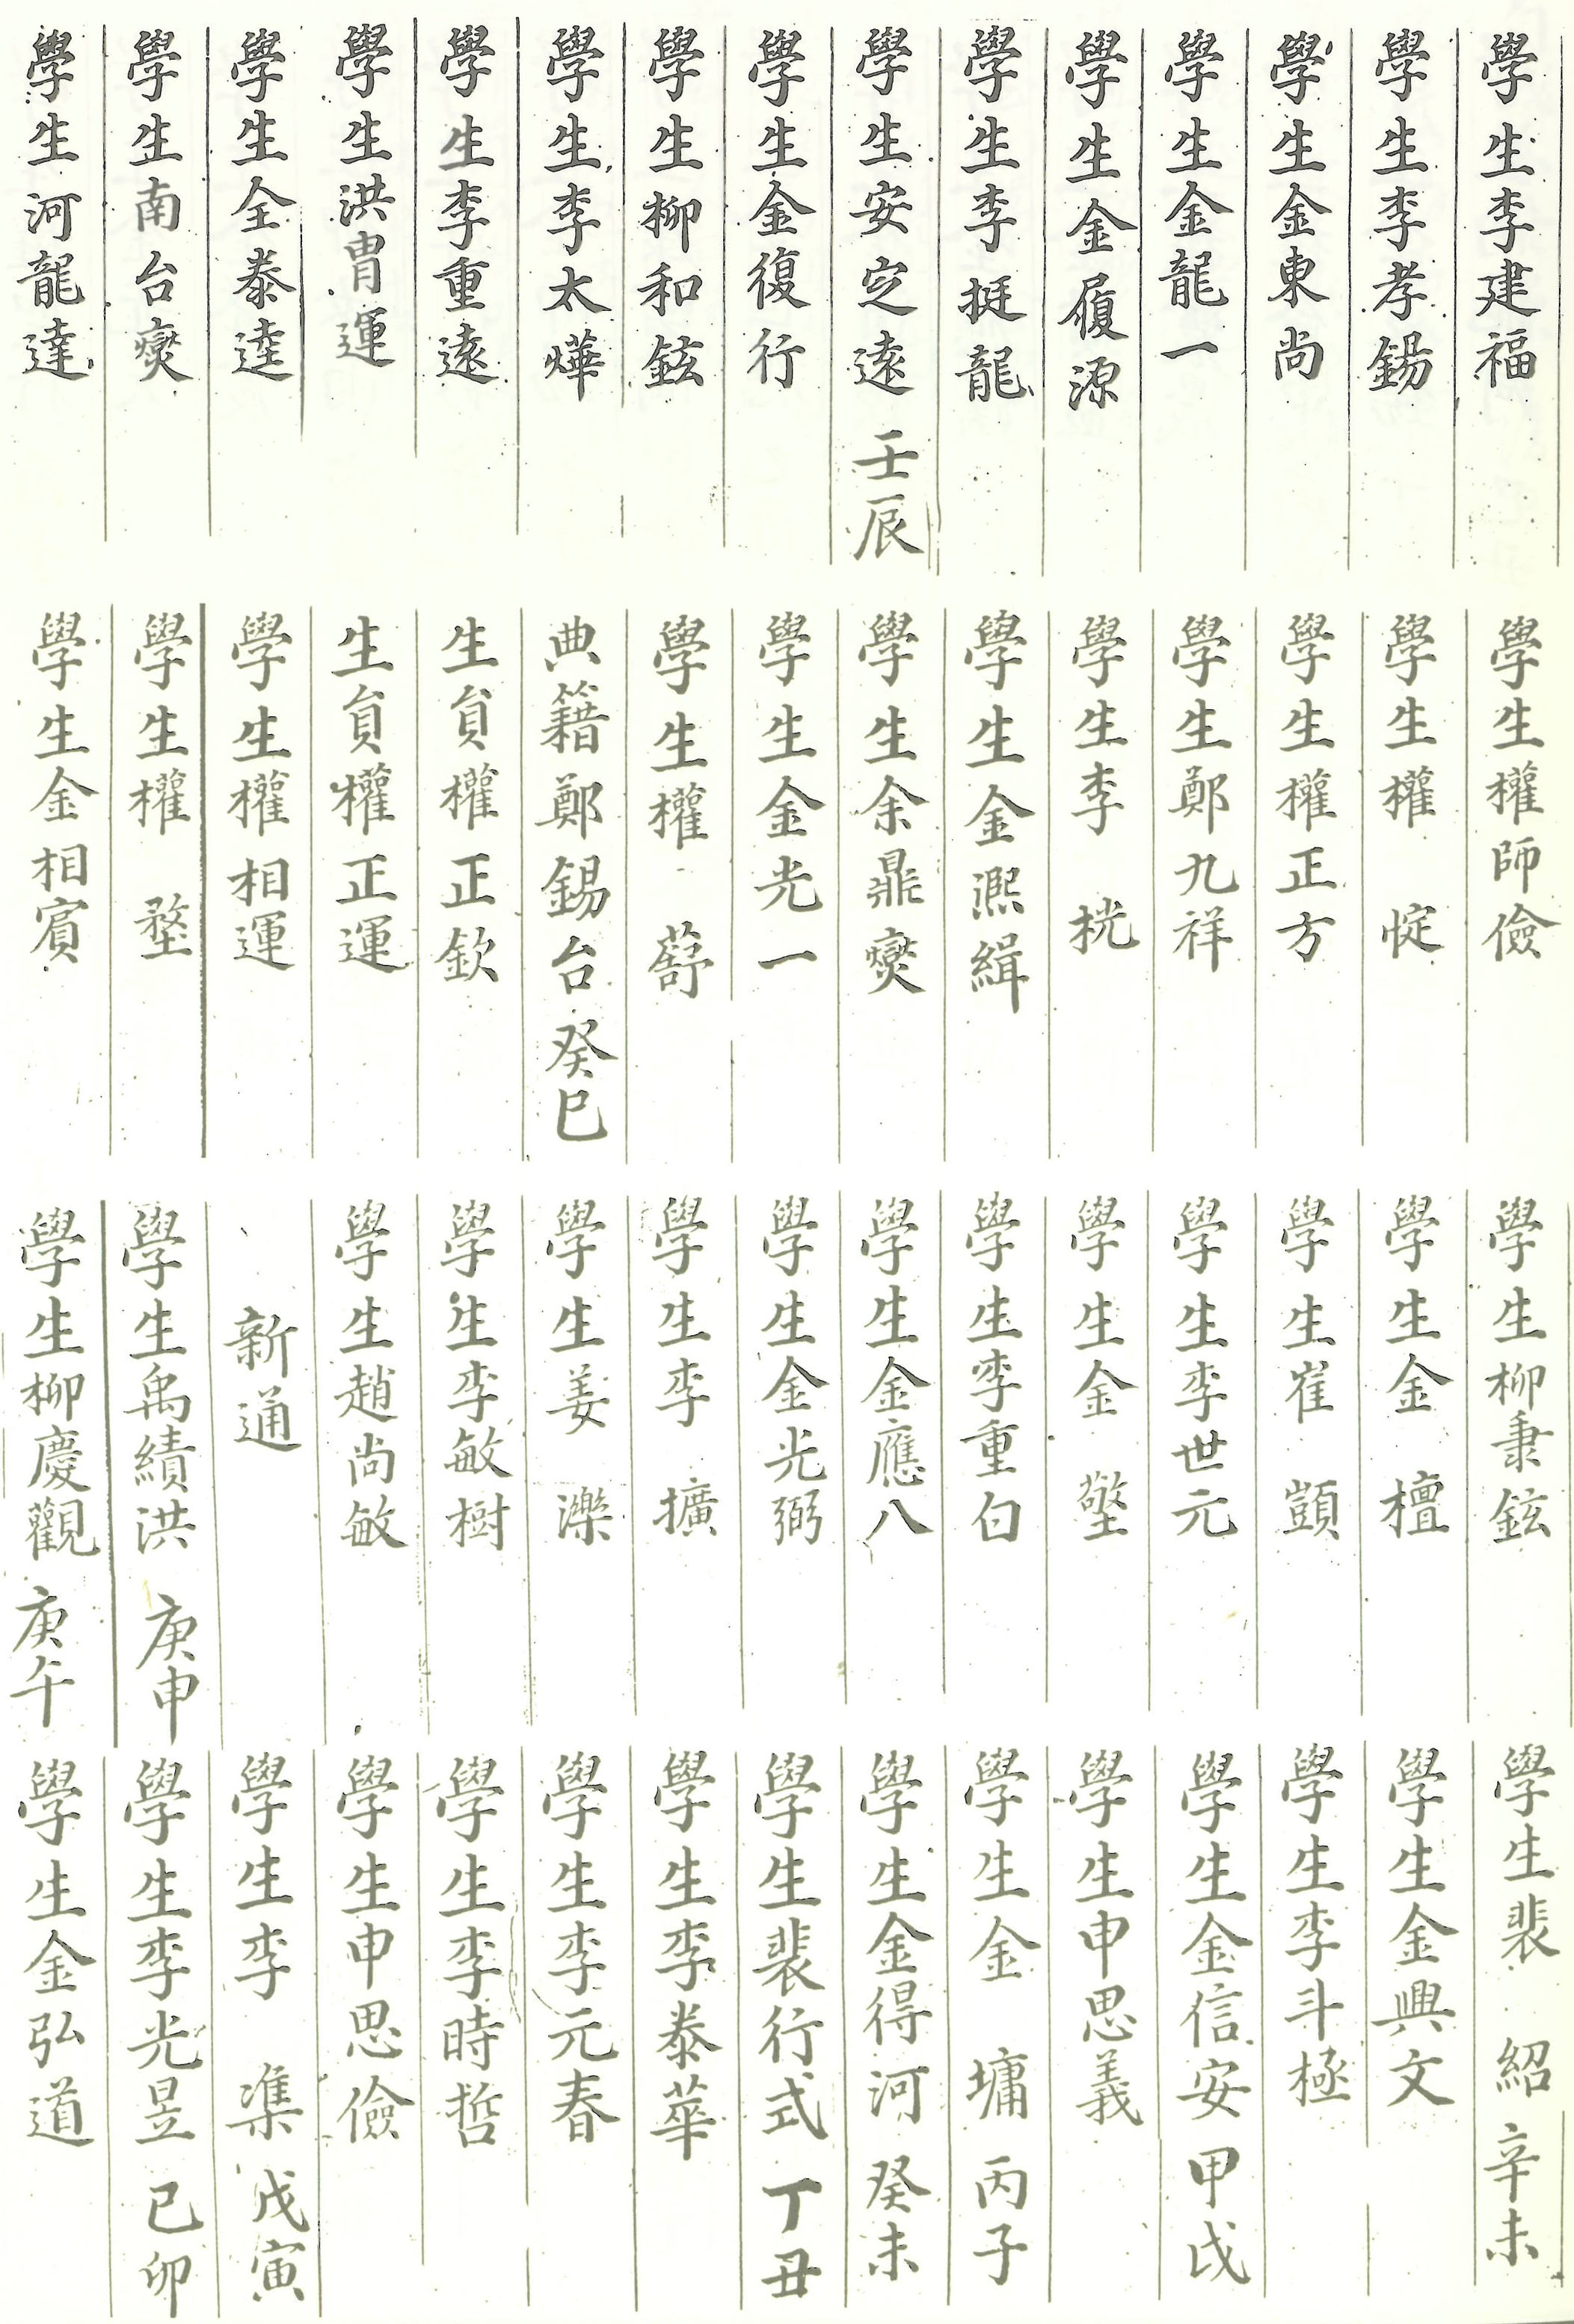 學生李建福
學生李孝錫
學生金東尚
學生金龍一
學生金履源
學生李挺龍
學生安㝎遠 壬辰
學生金復行
學生柳和鉉
學生李太燁
學生李重遠
學生洪胄運
學生全泰達
學生南台燮
學生河龍達
學生權師儉
學生權 㝎
學生權正方
學生鄭九祥
學生李 桄
學生金濉緝
學生余鼎燮
學生金光一
學生權 䔑
典籍鄭錫台 癸巳
生貟權正欽
生貟權正運
學生權相運
學生權 堥
學生金相賔
學生柳秉鉉
學生金 檀
學生崔 顗
學生李世元
學生金 墪
學生李重白
學生金應八
學生金光弼
學生李 擴
學生姜 濼
學生李敏樹
學生趙尚敏
新通
學生禹績洪 庚申
學生柳慶觀 庚午
學生裴 紹 辛未
學生金興文
學生李斗極
學生金信安 甲戌
學生申思義
學生金 墉 丙子
學生金得河 癸未
學生裴行式 丁丑
學生李泰華
學生李元春
學生李時哲
學生申思儉
學生李 準 戊寅
學生李光昱 己卯
學生金弘道